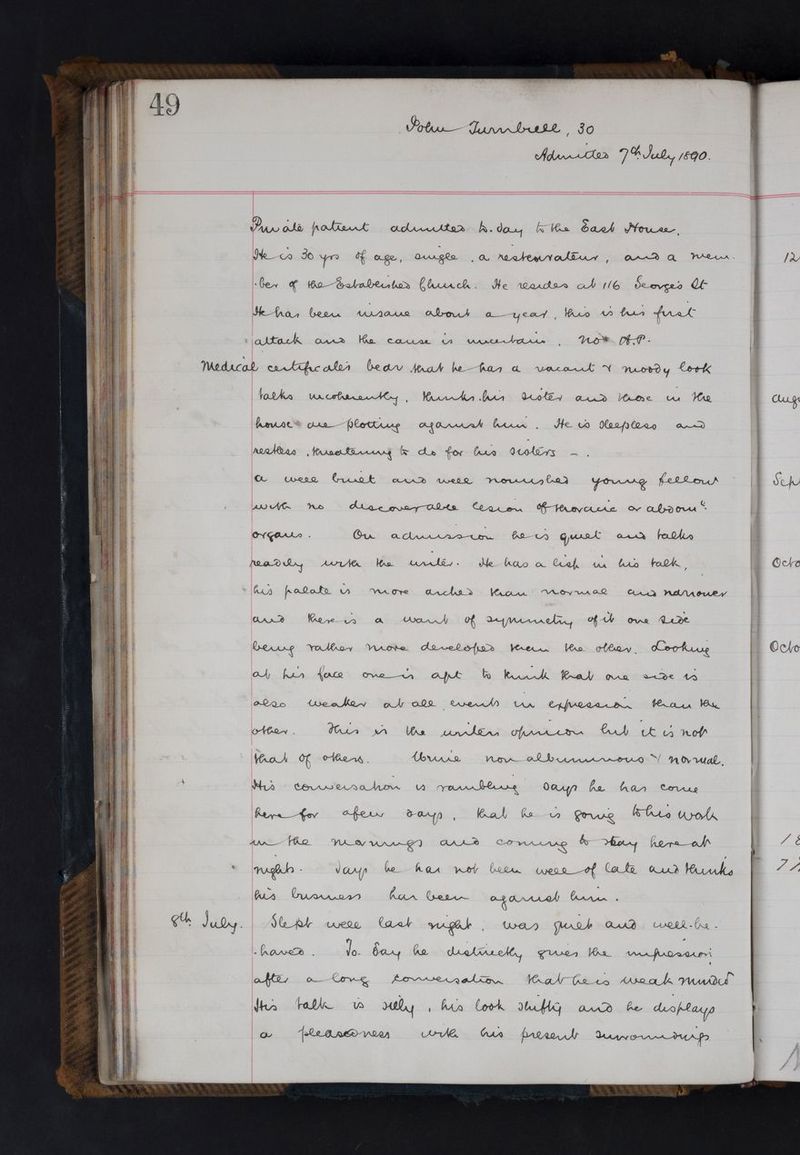 49
John Turnbull, 30
Admitted 7th July 1890.
Private patient admitted to-day to the East House.
He is 30 yrs of age, single, a restaurateur, and a mem-
-ber of the Established Church. He resides at 116 George's St
He has been insane about a year, this is his first
attack and the cause is uncertain. not
Medical certificates bear that he has a vacant & moody look
talks incoherently, thinks his sister and those in the
house are plotting against him. He is sleepless and
restless, threatening to do for his sisters - .
A well built and well nourished young fellow
with no discoverable lesion of thoracic or abdoml
organs. On admission he is quiet and talks
readily with the writer. He has a lisp in his talk,
his palate is more arched than normal and narrower
and there is a want of symmetry of it one side
being rather more developed than the other. Looking
at his face one is apt to think that one side is
also weaker at all events in expression than the
other. This is the writers opinion but it is not
that of others. Urine non albuminous & normal.
His conversation is rambling says he has come
here for a few days, that he is going to his work
in the mornings and coming to stay here at
nights. Says he has not been well of late and thinks
his business has been against him.
8th July. Slept well last night, was quiet and well-be-
-haved. To-day he distinctly gives the impression
after a long conversation that he is weak minded
His talk is silly, his look shifty and he displays
a pleasedness with his present surroundings
12
Aug
Sep
Octo
Octo